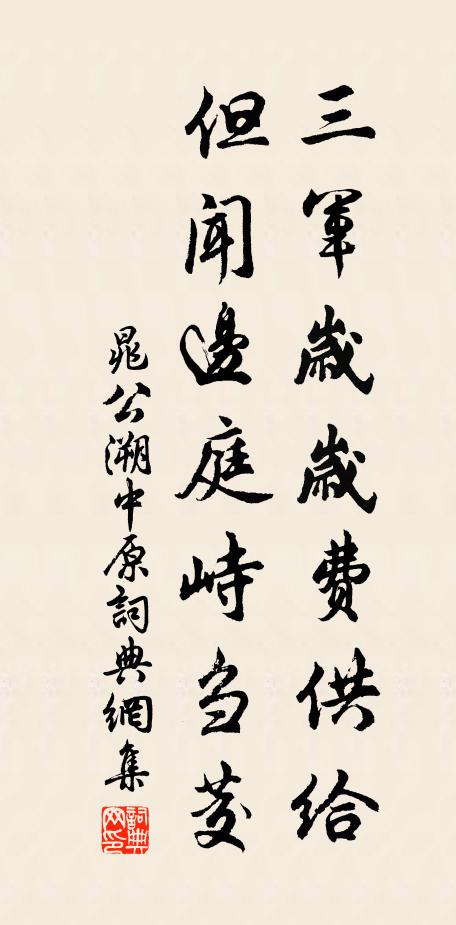 三軍歲歲費供給
但聞邊庭峙芻茭
晁公溯中原詞典網集
詞典网印